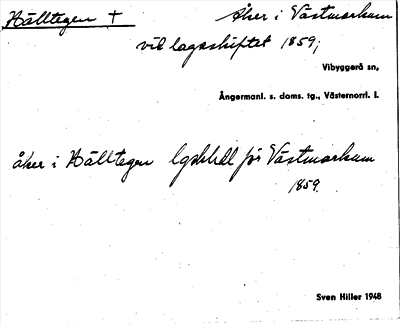 Hälltegen † Åker i Västmarkum
vid lagaskiftet 1859;
Vibyggerå sn,
Ångermanl. s. doms. tg., Västernorrl. l.
åker i Hälltegen Lgsk till för Västmarkum
1859.
Sven Hiller 1948